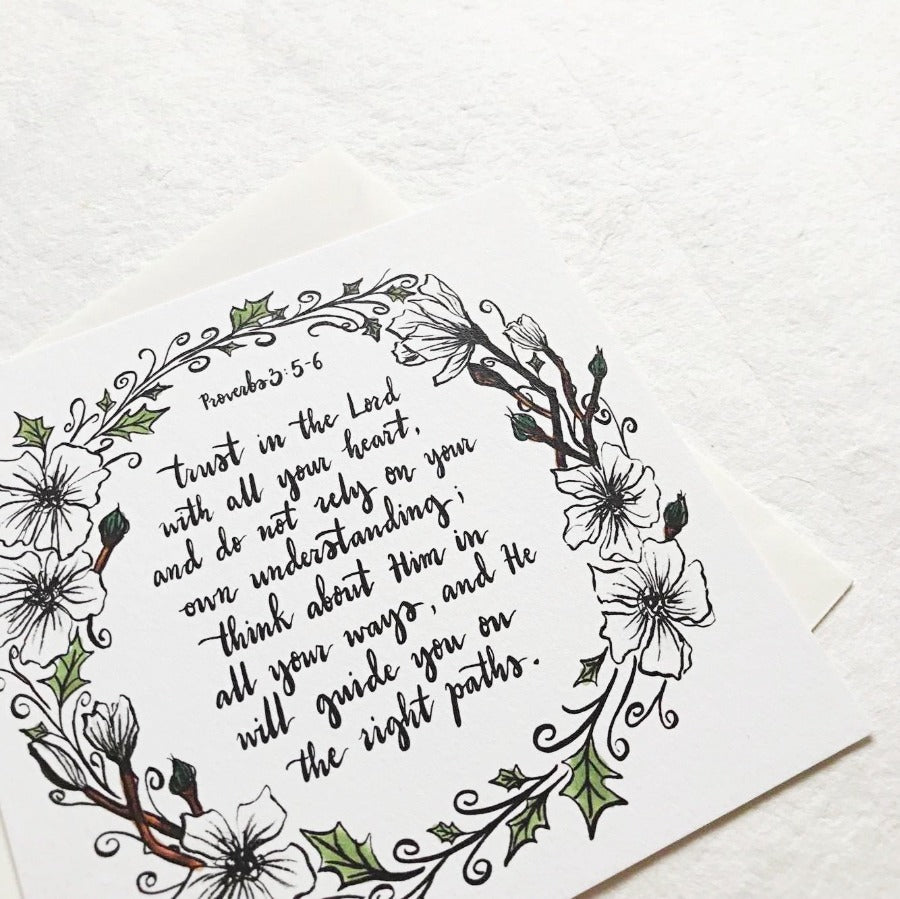 Proverbs 3:5-6
trust in the Lord
with all your heart,
and do not rely on your
own understanding;
think about Him in
all your ways, and He
will guide you on
the right paths.